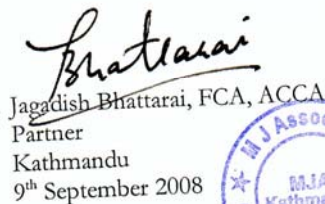 Bhattarai
Jagadish Bhattarai, FCA, ACCA
Partner
Kathmandu
9th September 2008
M J Asso
MJA
Kathma